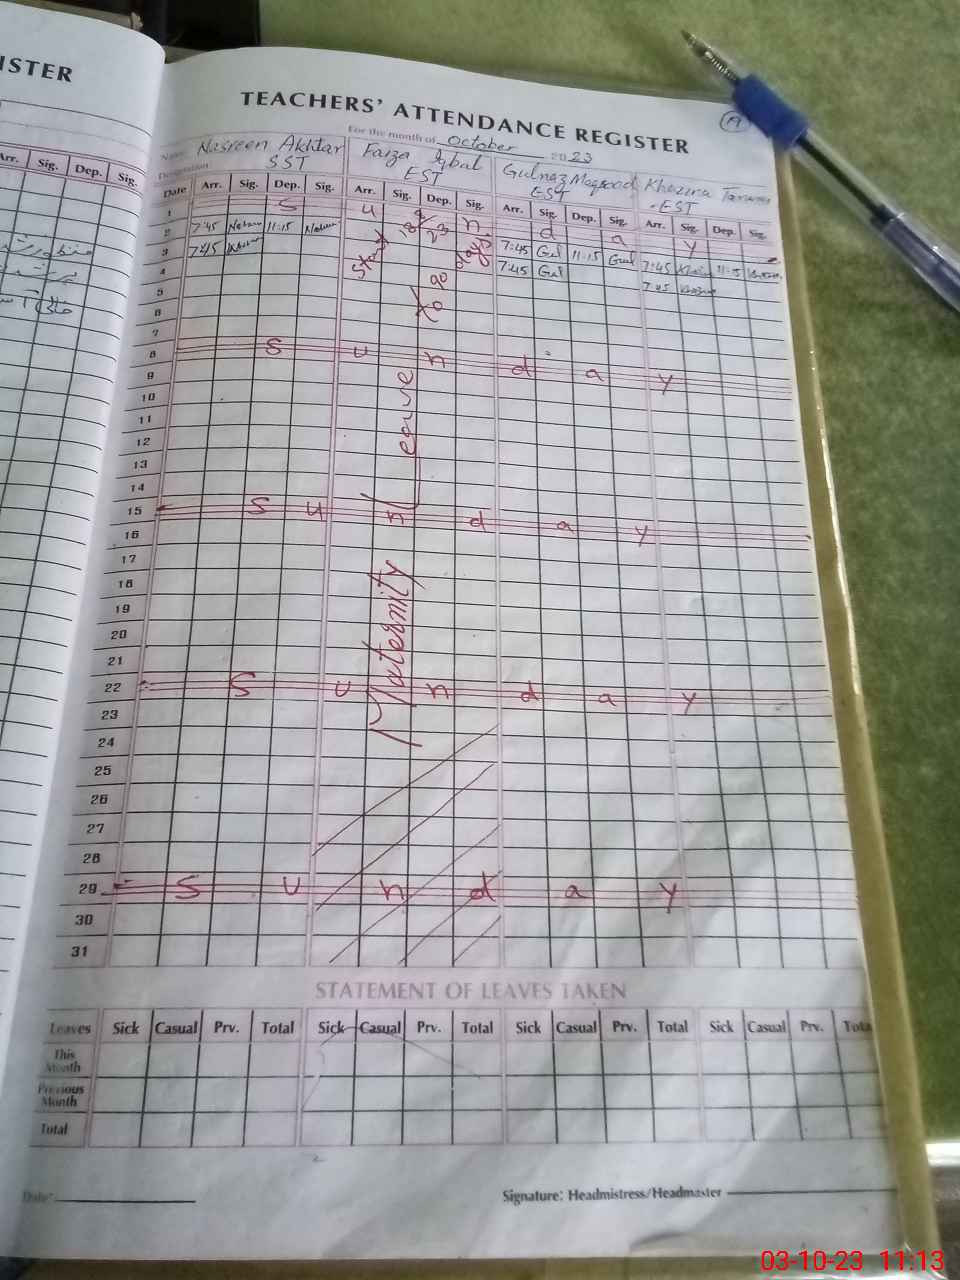 ISTER
Arr. Sig. Dep. Sig.
TEACHERS' ATTENDANCE REGISTER
19
For the month of October 2023
Name Nasreen Akhtar Faiza Iqbal Gulnaz Maqsood Khazira
Designation SST EST EST EST
Date Arr. Sig. Dep. Sig. Arr. Sig. Dep. Sig. Arr. Sig. Dep. Sig. Arr. Sig. Dep. Sig.
1 S u n d a y
2 7:45 11:15 7:45 Gul 11:15 Gul 7:45 11:15
3 7:45 7:45 Gul 7:45
4
5
6
7
8 S u n d a y
9
10
11
12
13
14
15 S u n d a y
16
17
18
19
20
21
22 S u n d a y
23
24
25
26
27
28
29 S u n d a y
30
31
Maternity Leave
90 days
STATEMENT OF LEAVES TAKEN
Leaves Sick Casual Prv. Total Sick Casual Prv. Total Sick Casual Prv. Total Sick Casual Prv. Tota
This Month
Previous Month
Total
Date: Signature: Headmistress/Headmaster
03-10-23 11:13